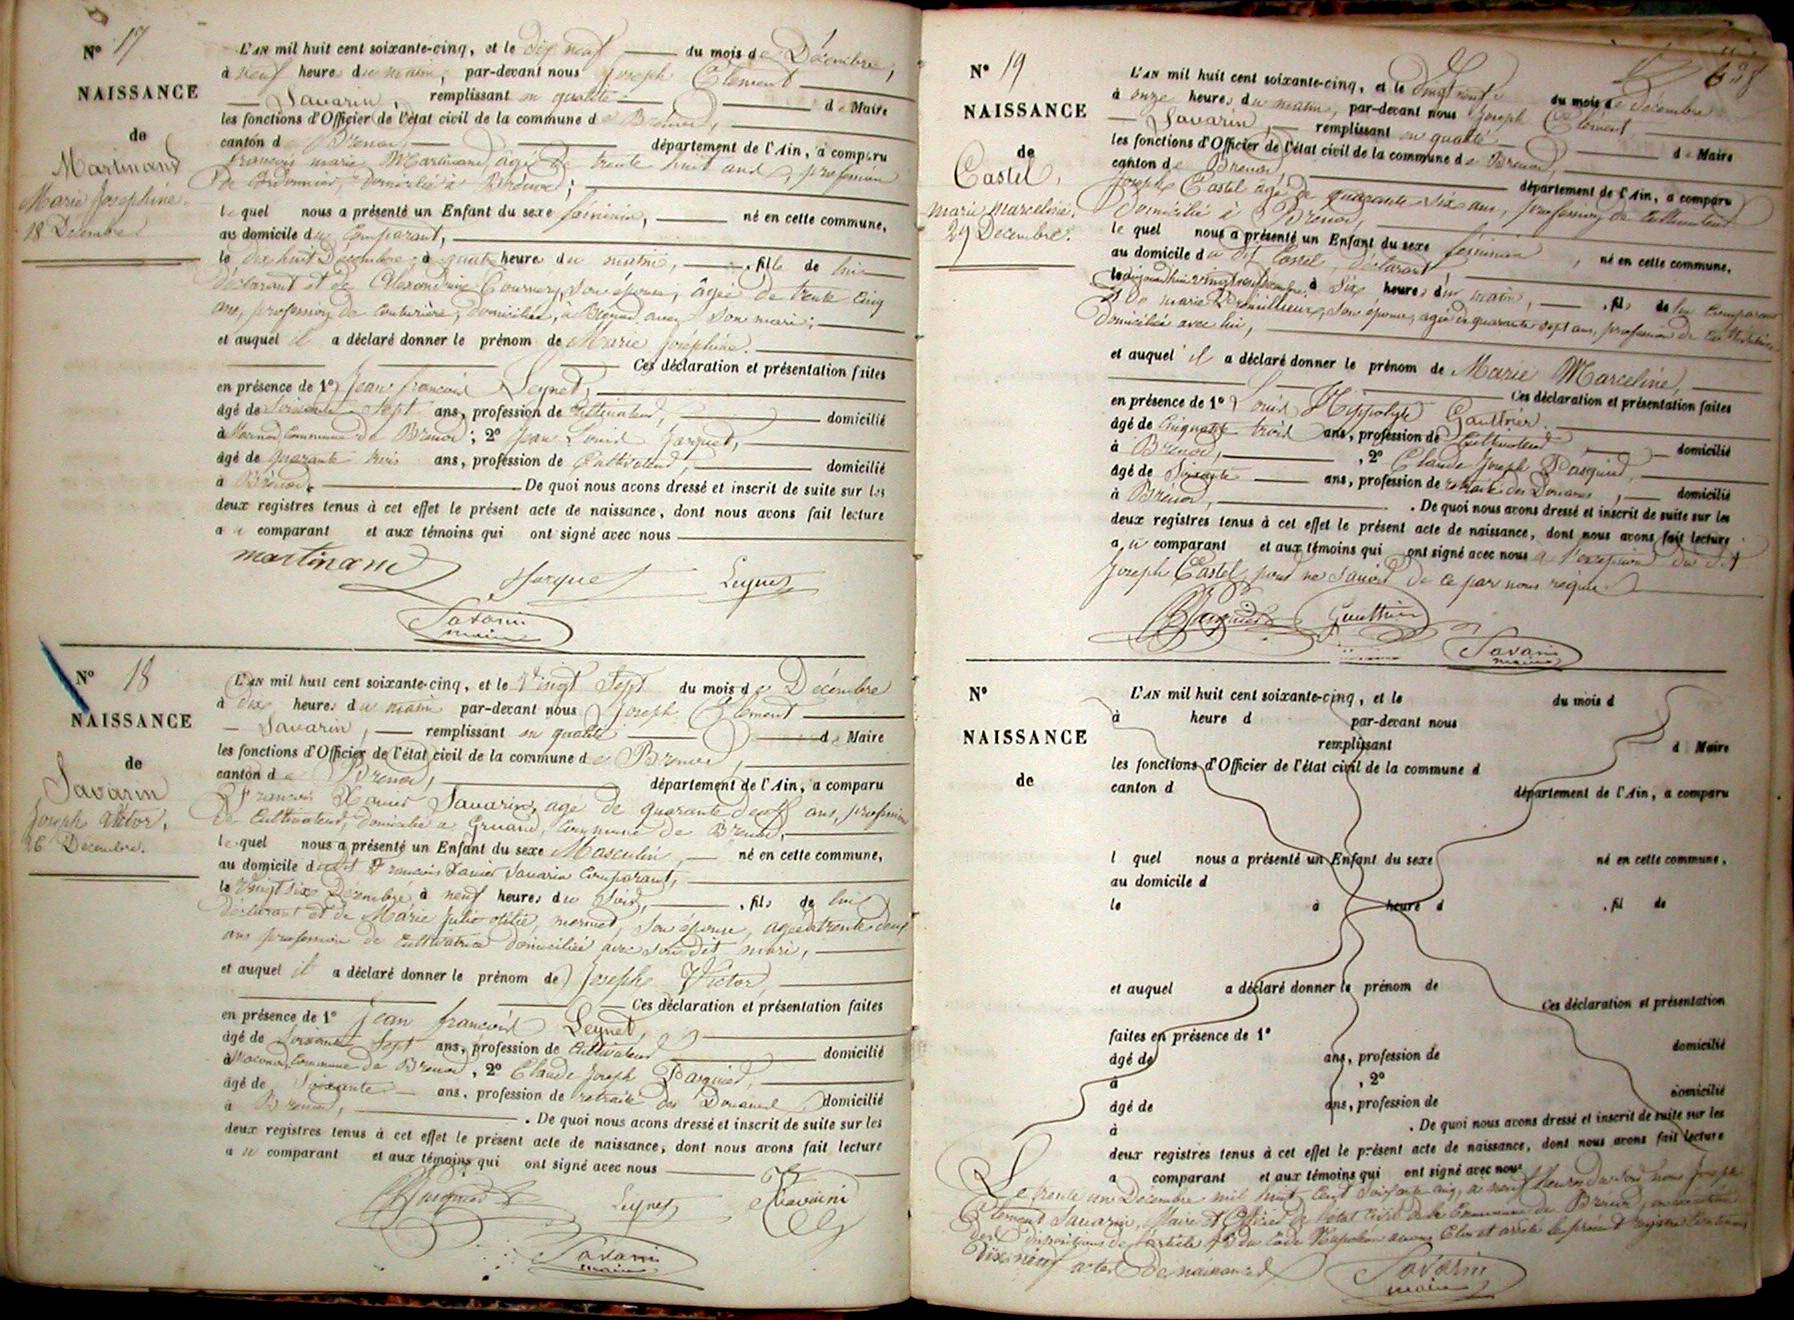 N° 17
NAISSANCE
de
Martinand
Marie Joséphine.
18 Décembre
L'AN mil huit cent soixante-cinq, et le dix neuf du mois de Décembre,
à neuf heures du matin, par-devant nous Joseph Clément
Savarin, remplissant en qualité de Maire
les fonctions d'Officier de l'état civil de la commune de Brénod,
canton de Brénod, département de l'Ain, a comparu
François marie Martinand, âgé de trente huit ans, profession
de Cordonnier, domicilié à Brénod;
lequel nous a présenté un Enfant du sexe féminin, né en cette commune,
au domicile du Comparant,
le dix huit Décembre à quatre heures du matin, fille de lui
déclarant et de Alexandrine Courney, son épouse, âgée de trente cinq
ans, profession de couturière, domiciliée à Brénod avec son mari;
et auquel il a déclaré donner le prénom de Marie Joséphine.
Ces déclaration et présentation faites
en présence de 1° Jean françois Leynet,
âgé de Soixante Sept ans, profession de Cultivateur, domicilié
à Macconod Commune de Brénod; 2° Jean Louis Jarquet,
âgé de quarante trois ans, profession de Cultivateur, domicilié
à Brénod. De quoi nous avons dressé et inscrit de suite sur les
deux registres tenus à cet effet le présent acte de naissance, dont nous avons fait lecture
au comparant et aux témoins qui ont signé avec nous
martinand Leynet
Savarin
maire
N° 18
NAISSANCE
de
Savarin
Joseph Victor,
26 Décembre.
L'AN mil huit cent soixante-cinq, et le Vingt Sept du mois de Décembre
à dix heures du matin par-devant nous Joseph Clément
Savarin, remplissant en qualité de Maire
les fonctions d'Officier de l'état civil de la commune de Brénod,
canton de Brénod, département de l'Ain, a comparu
François Xavier Savarin, âgé de quarante neuf ans, profession
de Cultivateur, domicilié a Gruand, Commune de Brénod,
lequel nous a présenté un Enfant du sexe Masculin, né en cette commune,
au domicile dudit François Xavier Savarin Comparant,
le Vingt six Décembre, à neuf heures du Soir, fils de lui
déclarant et de Marie Julie otélie, mermet, son épouse, agée de trente deux
ans profession de Cultivatrice domiciliée avec son dit mari,
et auquel il a déclaré donner le prénom de Joseph Victor,
Ces déclaration et présentation faites
en présence de 1° Jean françois Leynet,
âgé de Soixante Sept ans, profession de Cultivateur domicilié
à Macconod Commune de Brénod, 2° Claude Joseph Pasquier,
âgé de Soixante ans, profession de retraité des Douanes, domicilié
à Brénod, De quoi nous avons dressé et inscrit de suite sur les
deux registres tenus à cet effet le présent acte de naissance, dont nous avons fait lecture
au comparant et aux témoins qui ont signé avec nous
Leynet Savarin
Savarin
maire
N° 19
NAISSANCE
de
Castel,
marie marceline,
29 Décembre.
L'AN mil huit cent soixante-cinq, et le vingt neuf du mois de Décembre
à onze heures du matin, par-devant nous Joseph Clément
Savarin, remplissant en qualité de Maire
les fonctions d'Officier de l'état civil de la commune de Brénod,
canton de Brénod, département de l'Ain, a comparu
Joseph Castel âgé de quarante six ans, profession de Cultivateur
domicilié à Brénod,
lequel nous a présenté un Enfant du sexe féminin, né en cette commune,
au domicile du dit Castel, déclarant,
le vingt neuf Décembre, à Six heures du matin, fils de lui Comparant
et de marie son épouse, agée de quarante sept ans, profession de Cultivatrice
domiciliée avec lui,
et auquel il a déclaré donner le prénom de Marie Marceline,
Ces déclaration et présentation faites
en présence de 1° Louis Hippolyte Gauthier.
âgé de Cinquante trois ans, profession de Cultivateur domicilié
à Brénod, 2° Claude Joseph Pasquier,
âgé de Soixante ans, profession de retraité des Douanes, domicilié
à Brénod, De quoi nous avons dressé et inscrit de suite sur les
deux registres tenus à cet effet le présent acte de naissance, dont nous avons fait lecture
au comparant et aux témoins qui ont signé avec nous a l'exception du dit
Joseph Castel, pour ne savoir de ce par nous requis
Gauthier
Savarin
maire
N°
NAISSANCE
de
L'AN mil huit cent soixante-cinq, et le du mois d
à heure d par-devant nous
remplissant d Maire
les fonctions d'Officier de l'état civil de la commune d
canton d département de l'Ain, a comparu
l quel nous a présenté un Enfant du sexe né en cette commune,
au domicile d
le à heure d , fil de
et auquel a déclaré donner le prénom de
Ces déclaration et présentation
faites en présence de 1°
âgé de ans, profession de domicilié
à , 2°
âgé de ans, profession de domicilié
à . De quoi nous avons dressé et inscrit de suite sur les
deux registres tenus à cet effet le présent acte de naissance, dont nous avons fait lecture
a comparant et aux témoins qui ont signé avec nous
Le trente un Décembre mil huit cent soixante cinq, a neuf heures du soir nous Joseph
Clément Savarin, Maire et Officier de l'état Civil de la Commune de Brénod, en exécution
des dispositions de l'article 43 du Code Napoléon avons Clos et arrêté le présent registre Contenant
Dix neuf actes de naissances
Savarin
maire